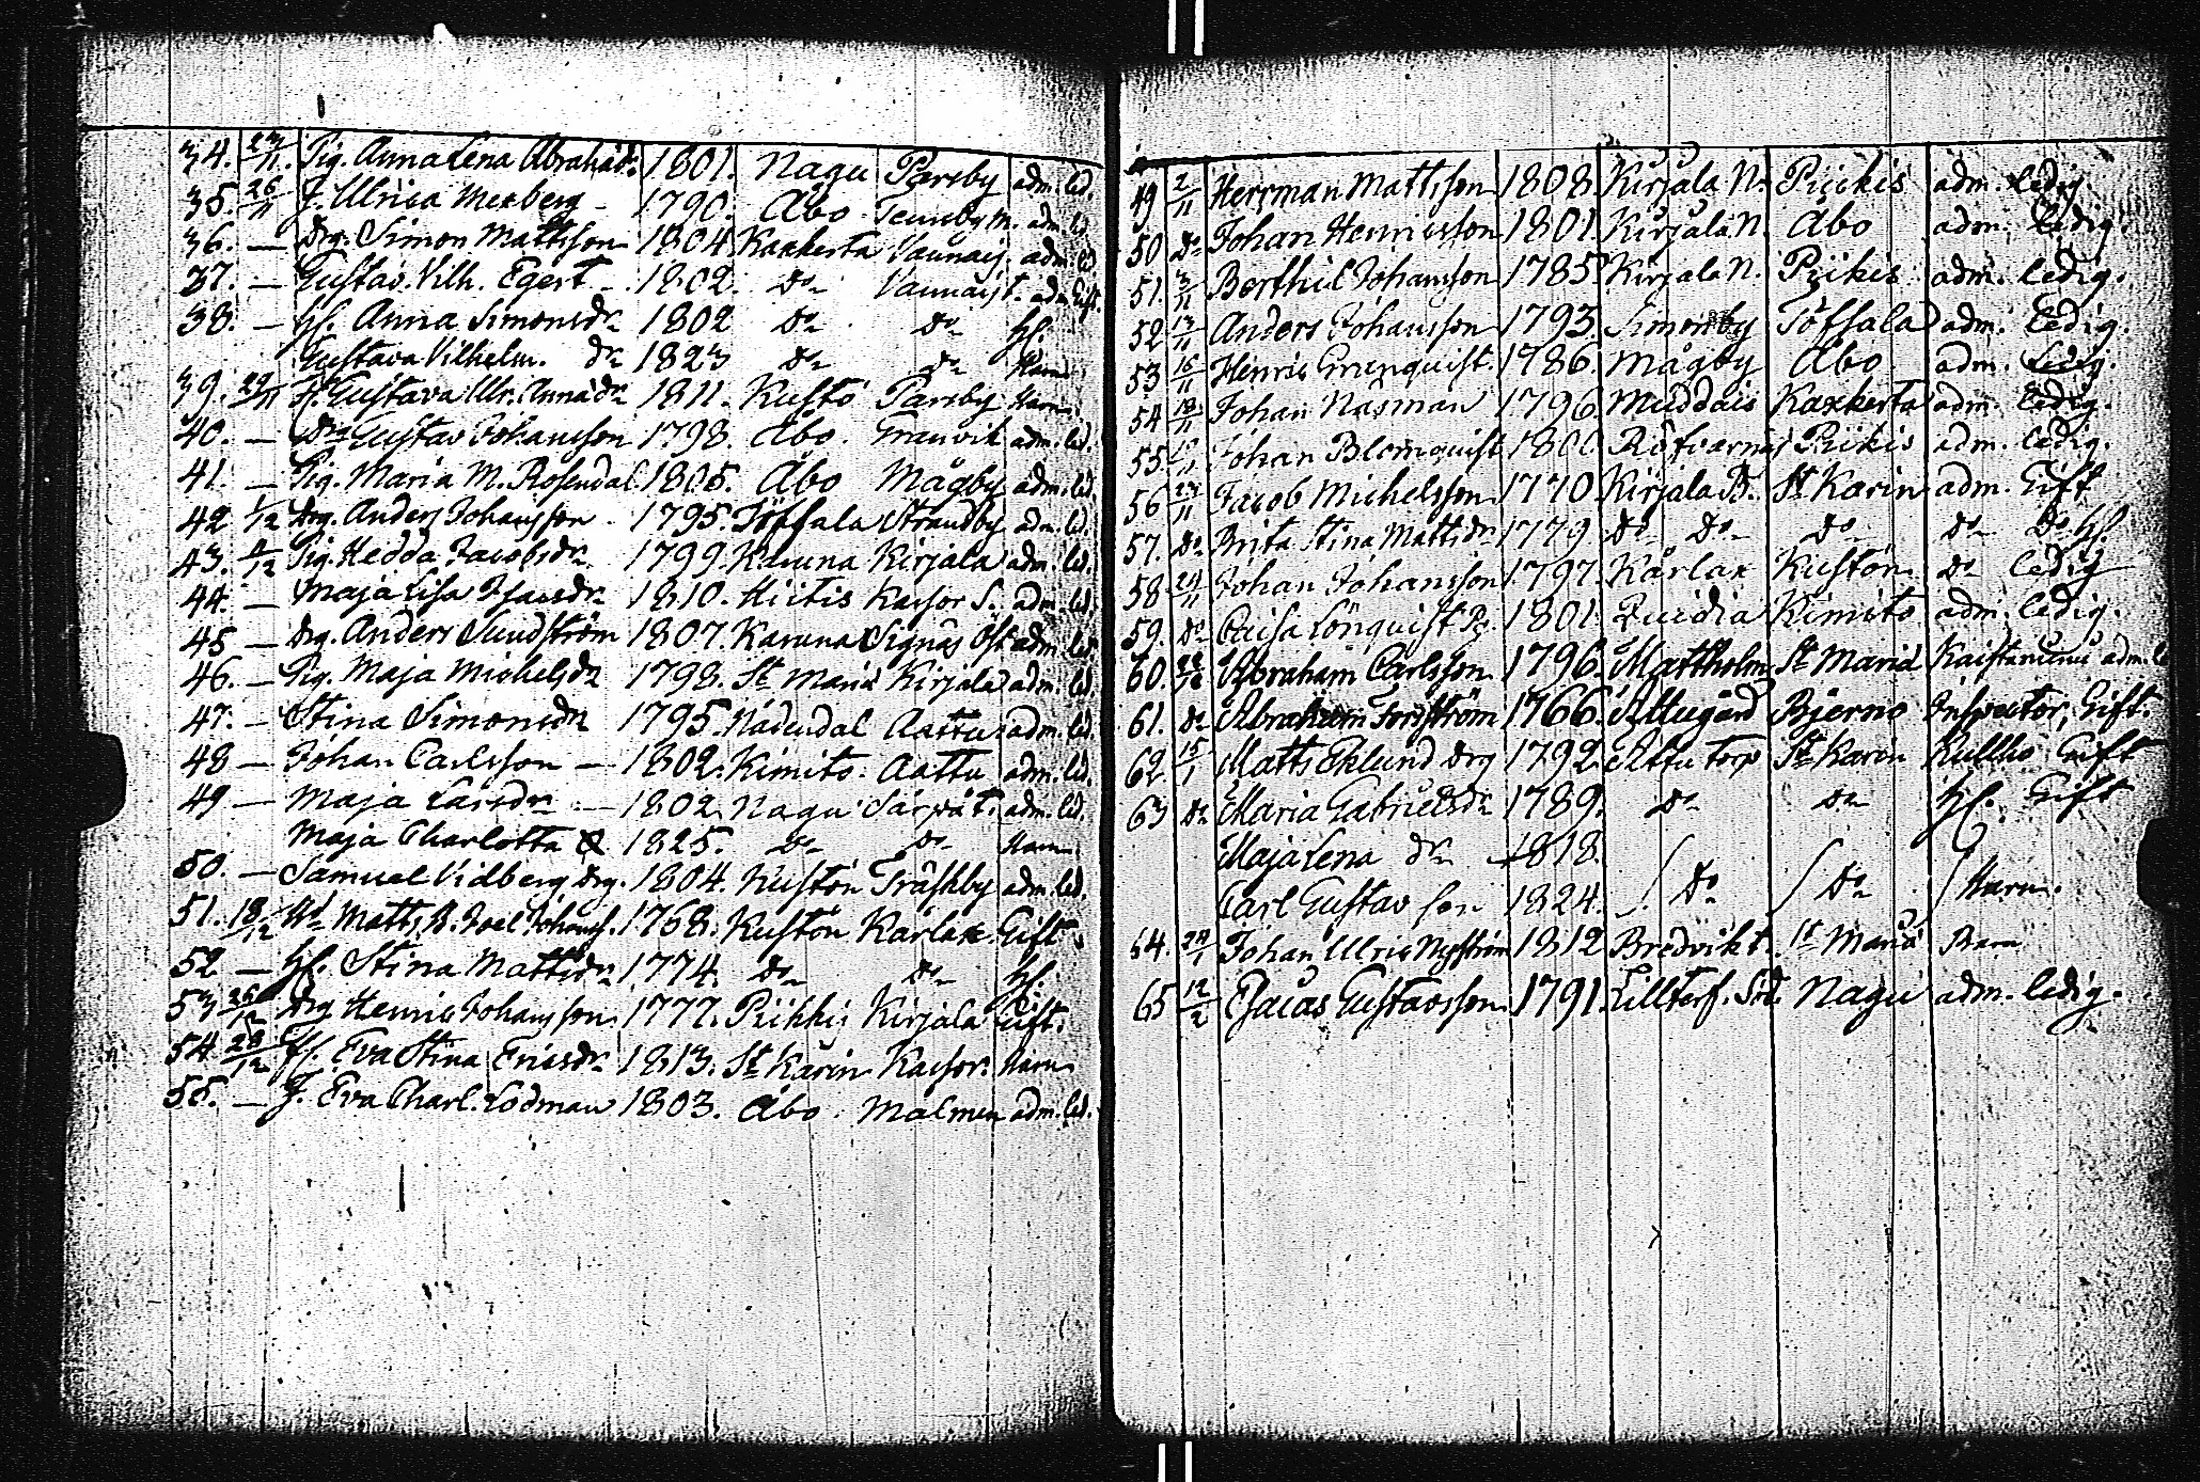 34. 23/11. Pig. Anna Lena Abrahädr. 1801. Nagu Parsby adm. led.
35. 26/11 J. Ulrica Mexberg - 1790. Åbo Tennäby M. adm. led.
36. — Drg. Simon Mattsson 1804 Kaxkerta Vaunaij adm. led.
37. — Gustav. Vilh. Egert - 1802. Do Vaunaist. adm. Gift.
38. — Hf. Anna Simonsdr 1802 Do Do Hf.
Gustava Vilhelm. dr 1823 Do Do Harn
39. 29/11 Fl. Gustava Ulr. Annädr 1811. Kustö Parsby Harn
40. — Drg Gustav Johansson 1798. Åbo. Granvik adm. led.
41. — Pig. Maria M. Rosendal 1805. Åbo Mågby adm. led.
42 1/12 Drg. Anders Johansson 1795. Töfsala Strandby adm. led.
43. 4/12 Pig. Hedda Jacobsdr 1799. Karuna Kirjala adm. led.
44. — Maja Lisa Isacsdr 1810. Hiitis Kassor S. adm. led.
45 — Drg. Anders Sundström 1807. Karuna Signäs Öst. adm. led.
46. — Pig. Maja Michelsdr 1798. St Mariä Kirjala adm. led.
47. — Stina Simonsdr 1795. Nådendal Aattu adm. led.
48 — Johan Carlsson — 1802. Kimito. Aattu adm. led.
49 — Maja Larsdr — 1802. Nagu Särpåt. adm. led.
Maja Charlotta 1825. Do Do Harn
50. — Samuel Vidberg Drg. 1804. Kustön Träskby adm. led.
51. 18/12 Matts B. Joel Johanss. 1768. Kustön Kärlax Gift
52 — Hf. Stina Mattsdr 1774. Do Do Hf.
53 26/12 Drg Henric Johansson 1777. Piikkis Kirjala Gift.
54 28/12 Fl. Eva Stina Ericsdr 1813. St Karin Kassor. Harn
55. — J. Eva Charl. Lodman 1803. Åbo. Malmen adm. led.
49 2/11 Herrman Mattsson 1808. Kirjala N. Piickis adm. ledig.
50 Do Johan Henricsson 1801. Kirjala N. Åbo adm. ledig.
51. 3/11 Berthil Johansson 1785. Kirjala N. Piikis adm. ledig.
52 13/11 Anders Johansson 1793. Simonby Töfsala adm. ledig.
53 16/11 Henric Grenquist. 1786. Mågby Åbo adm. ledig.
54 18/11 Johan Näsman 1796. Muddais Kaxkerta adm. ledig.
55. Johan Blomquist 1800. Röfvarnäs Piikis adm. ledig.
56 Jacob Michelsson 1770. Kirjala St Karin adm. Gift
57. Do Brita Stina Mattsdr 1779 Do Do Do Do Do Hf.
58 Johan Johansson 1797. Kärlax Kustön Do ledig
59. Do Caisa Lönquist Pg. 1801. Quidia Kimito adm. ledig.
60. Abraham Carlsson 1796. Mattholm St Mariä Kaistarniemi adm. le
61. Do Abraham Forsström 1766. Attugård Bjerno Inspector, Gift.
62. 15/1 Matts Eklund Drg 1792. Attu torp St Karin Kullho Gift
63 Do Maria Gabrielsdr 1789. Do Do Hf. Gift
Maja Lena dr 1818.
Carl Gustav son 1824. Do Do Harn.
64. 24/1 Johan Ulric Nyström 1812 Bredvikt. St Mariä Barn
65 12/2 Esaias Gustavsson 1791. Lilltorf. Söd. Nagu adm. ledig.